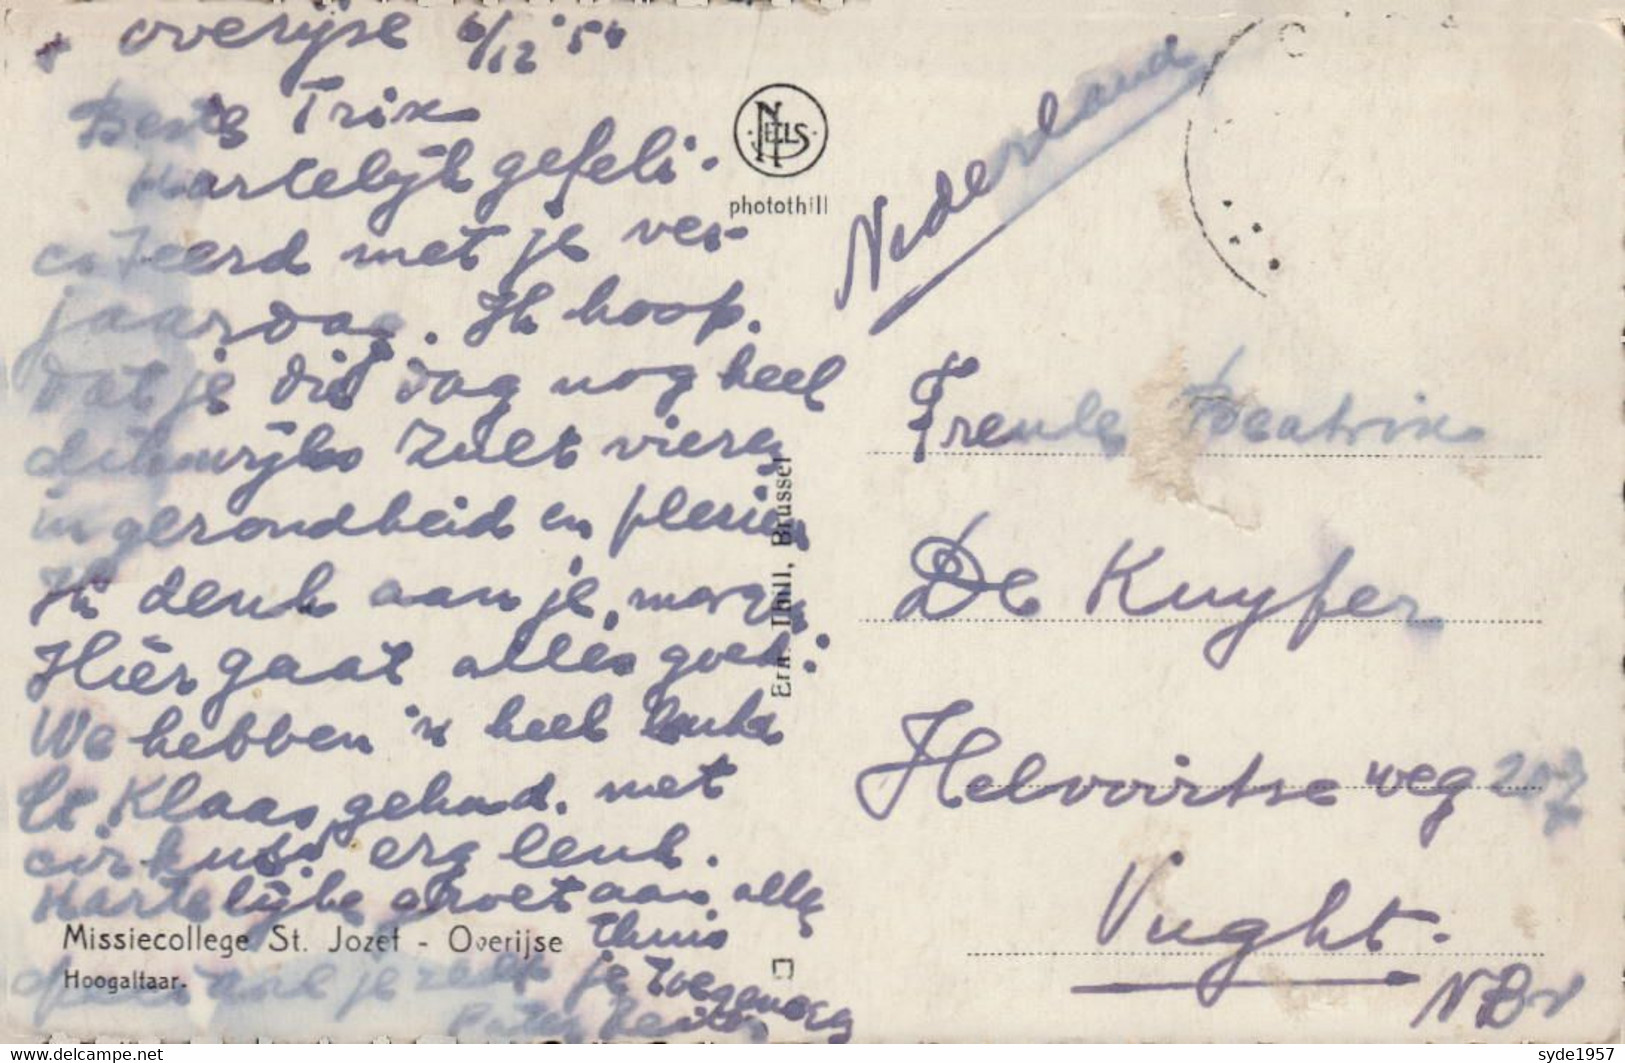 Overijse 6/12 '56
Beste Trix
Hartelijk gefeli-
citeerd met je ver-
jaardag. Ik hoop.
dat je die dag nog heel
dikwijls zult vieren
in gezondheid en plezier
Ik denk aan je, morgen
Hier gaat alles goed:
We hebben 'n heel leuke
St Klaas gehad. met
cirkus erg leuk.
Hartelijke groet aan alle
thuis
je zelf je toegenegen
Pater
NELS
photothill
Ern. Thill, Brussel
Missiecollege St. Jozef - Overijse
Hoogaltaar.
Nederland
Freule Beatrix
De Kuyper
Helvoirtse weg 207
Vught.
N Br
syde1957